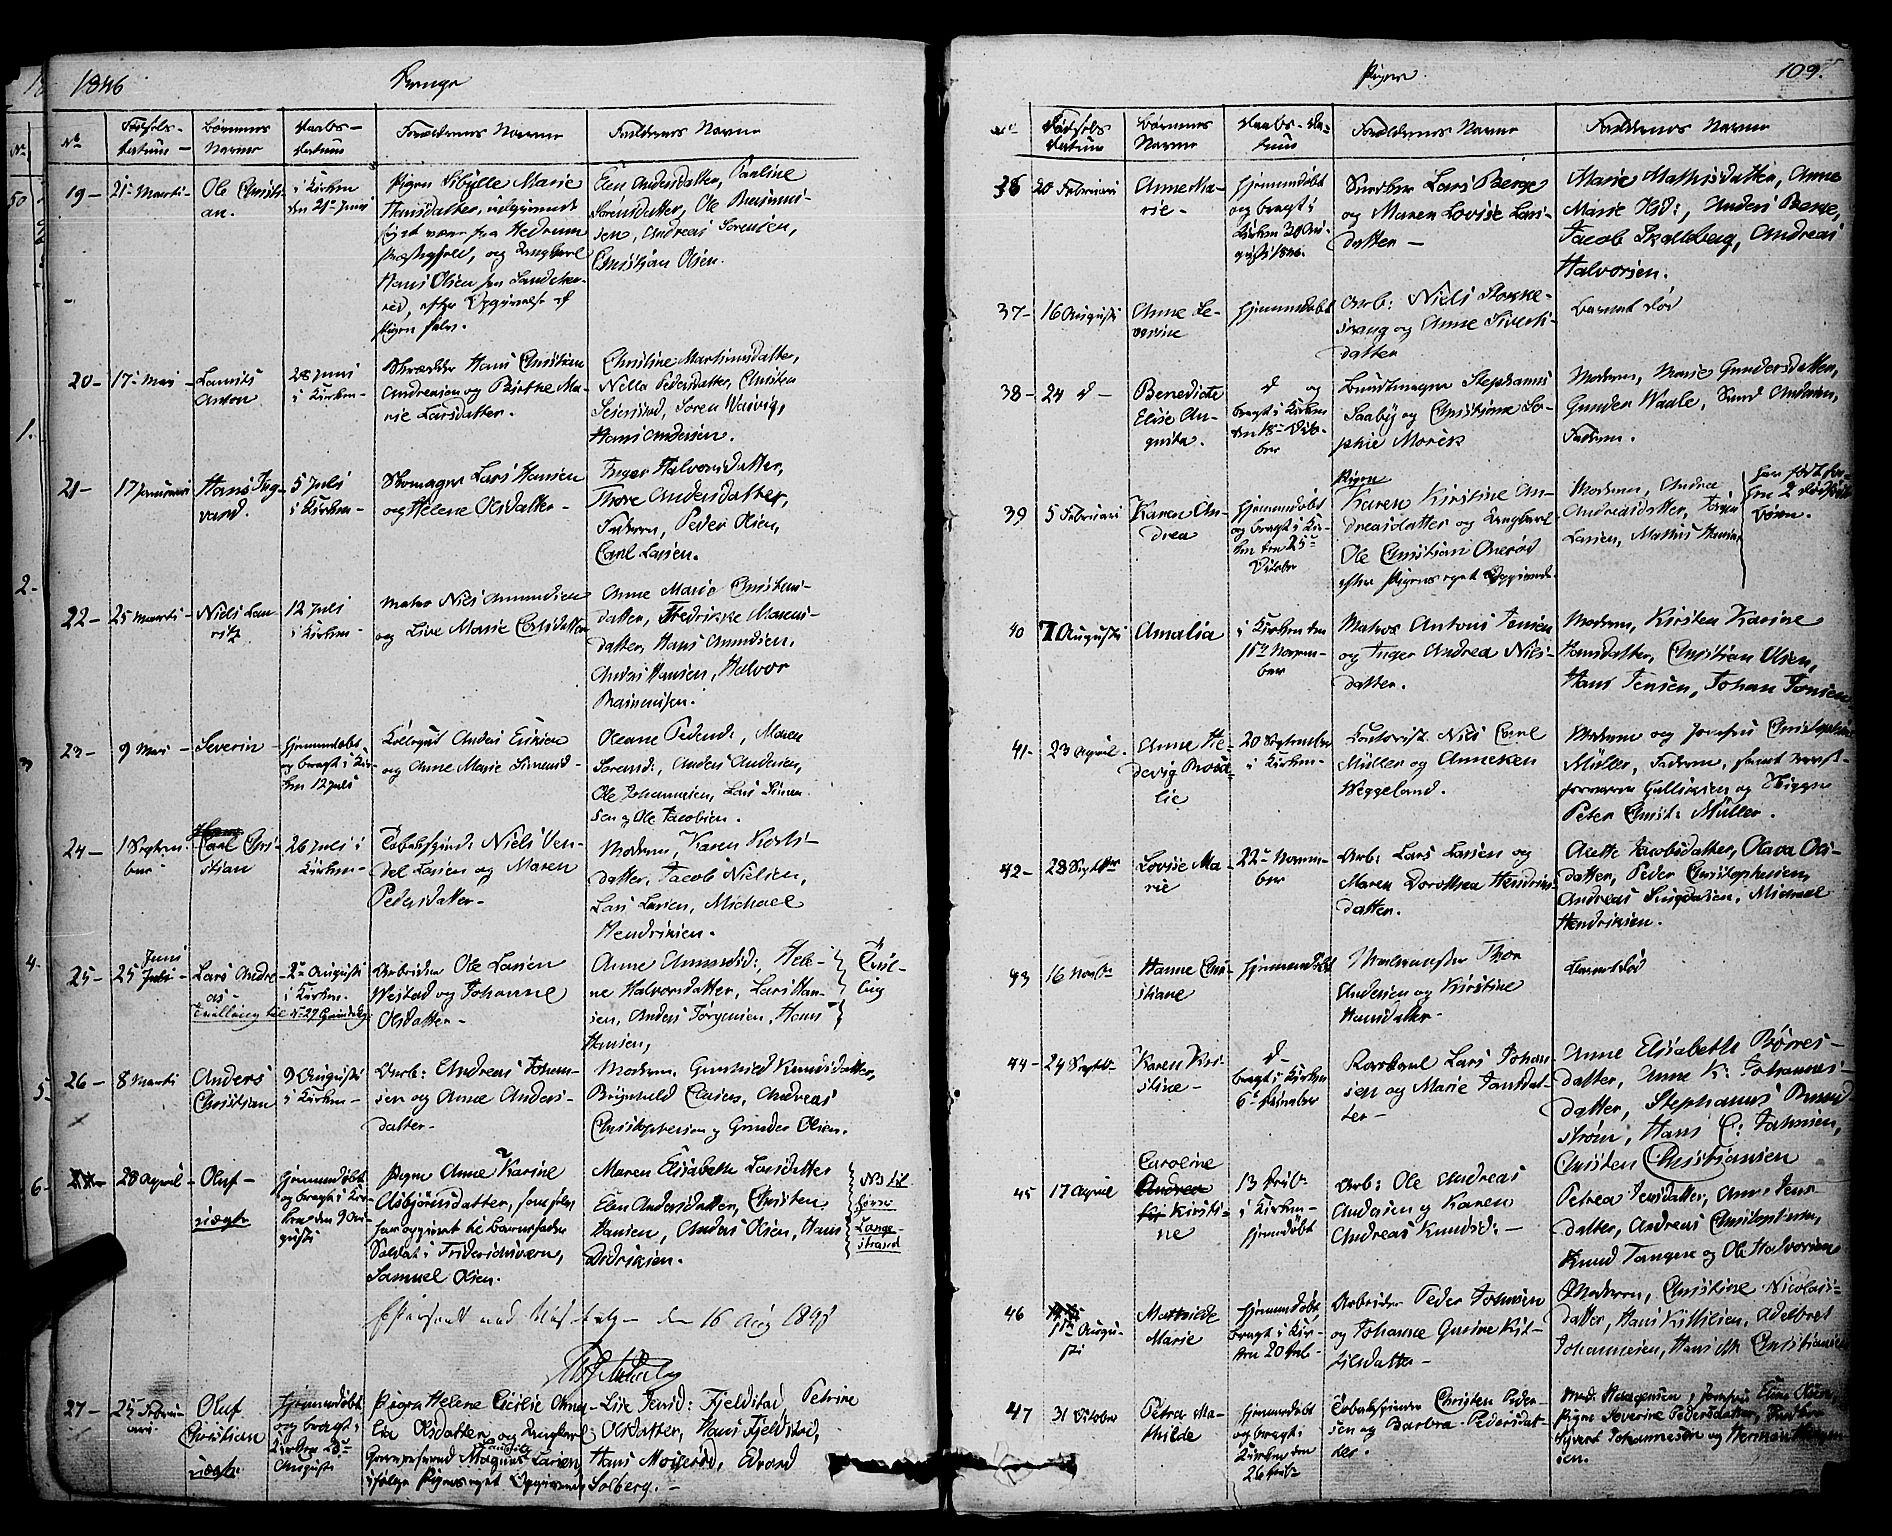 1846
Drenge
No
Fødsels-
datum
Børnenes
Navne
Daabs-
datum
Forældrenes Navne
Faddernes Navne
19-
21 Marti-
Ole Christi-
an.
i Kirken
den 21 Juni
Pigen Sibylle Marie
Hansdatter,
fra Hedrum
Præstegjeld, og Ungkarl
Hans Olsen fra Sandeher-
red, efter Opgivelse af
Pigen selv.
Elen Andersdatter, Pauline
Sørensdatter, Ole Rasmus-
sen, Andreas Sørensen,
Christian Olsen.
20-
17 Mai-
Laurits
Anton
28 Juni
i Kirken-
Skrædder Hans Christian
Andreasen og Birthe Ma-
rie Larsdatter.
Christine Martinusdatter,
Nella Pedersdatter, Christen
Seierstad, Søren
Hans Andersen.
21-
17 Januari
Hans Ing-
vard.
5 Juli
i Kirken-
Skomager Lars Hansen
og Helene Olsdatter-
Inger Halvorsdatter,
Thore Andersdatter,
Faderen, Peder Olsen,
Carl Larsen.
22-
25 Marti-
Niels Lau-
ritz
12 Juli
i Kirken-
Matros Niels Amundsen
og Live Marie
Anne Marie Christens-
datter, Fredrikke Marcus-
datter, Hans Amundsen,
Anders Hansen, Halvor
Rasmussen.
23-
9 Mai-
Severin-
hjemmedøbt
og bragt i Kir-
ken 12 Juli
Anders Eriksen
og Anne Marie Simensd-
Oleane Pedersd:, Maren
Sørensd:, Anders Andersen,
Ole Johannesen, Lars Simen-
sen og Ole Jacobsen.
24-
1 Septem-
ber
Carl Chri-
stian
26 Juli i
Kirken-
Niels Ven-
del Larsen og Maren
Pedersdatter-
Moderen, Karen
datter, Jacob Nielsen,
Lars Larsen, Michael
Hendriksen.
25-
25 Juni
Juli-
Lars Andre-
as-
Tvilling til
2 Augusti
i Kirken-
Arbeider Ole Larsen
Westad og Johanne
Olsdatter-
Anne Amundsd:, Hele-
ne Halvorsdatter, Lars Han-
sen, Anders Jørgensen, Hans
Hansen,
Tvil-
ling
26-
8 Marti
Anders
Christian
9 Augusti
i Kirken-
Arb: Andreas Johan-
sen og Anne Anders-
datter-
Moderen, Gunhild Knudsdatter,
Brynhild Clasens, Andreas
Christophersen og Gunder Olsen.
28 April-
Oluf-
uægte
hjemmedøbt
og bragt i Kir-
ken den 9 Au-
gusti
Pigen Anne Karine
Asbjørnsdatter, som selv
har opgivet til Barnefader
Soldat i Frideriksværn,
Samuel Olsen.
Maren Elisabeth Larsdatter
Elen Andersdatter, Christen
Hansen, Anders Olsen, Hans
Didriksen.
Lange-
strand
Efterseet ved Visitats- den 16 Aug 1847
27-
25 Februa-
ri
Oluf
Christian
uægte
hjemmedøbt
og bragt i
Kirken 23
Augusti
Pigen Helene Cicilie Ama-
lia Olsdatter og Ungkarl
Magnus Larsen
ifølge Pigens eget Opgivende
Live Jensd: Fjeldstad, Petrine
Olsdatter, Hans Fjeldstad,
Hans Moserød, Edvard
Solberg.-
Piger
109.
No
Fødsels
datum
Børnenes
Navne
Daabs-da-
tum
Forældrenes Navne
Faddernes Navne
36
20 Februari
Anne Ma-
rie-
hjemmedøbt
og bragt i
Kirken 30 Au-
gusti 1846.
Lars Berge
og Maren Lovise Lars-
datter-
Marie Mathisdatter, Anne
Marie Hsd:, Anders Berge,
Jacob Skalleberg, Andreas
Halvorsen.
37-
16 Augusti
Anne Se-
verine
hjemmedøbt
Arb: Niels Storke-
svang og Anne Siverts-
datter
Barnet død
38-
24 d-
Benedicte
Elise Au-
gusta.
d og
bragt i Kirken
den 18 Octo-
ber
Bundtmager Stephanus
Saaby og Christine So-
phie Morck
Moderen, Marie Gundersdatter,
Gunder Waale, Sund Andersen,
Faderen.
39
5 Februari
Karen An-
drea
hjemmedøbt
og bragt i Kir-
ken den 25
October
Pigen
Karen Kirstine An-
dreasdatter og Ungkarl
Ole Christian Anerød
efter Pigens eget Opgivende
Moderen, Andrea
Andreasdatter, Jørgen
Larsen, Mathis Hansen
har født før-
2
Børn.
40
7 Augusti
Amalia
i Kirken den
15 Novem-
ber
Matros Antons Jensen
og Inger Andrea Niels-
datter.
Moderen, Kirsten Karine
Hansdatter, Christian Olsen,
Hans Jensen, Johan Jonsen
41-
23 April-
Anne He-
devig Rosa-
lie
20 September
i Kirken-
Contorist Niels Carl
Müller og Anneken
Weggeland.
Moderen og Jomfru Christophine
Müller, Faderen, samt
Gulliksen og
Peter Christ: Müller.
42-
28 Septbr
Lovise Ma-
rie
22 Novem-
ber
Arb: Lars Larsen og
Maren Dorothea Hendriks-
datter.
Anette Jacobsdatter, Olava Ols-
datter, Peder Christophersen,
Andreas Sivertsen, Michael
Hendriksen.
43
16 Novbr
Hanne Chri-
stiane
hjemmedøbt
Thor
Andersen og Kirstine
Hansdatter-
Barnet død
44-
24 Septb-
Karen Kir-
stine-
d-
bragt i Kirken
6 December
Lars Johan-
sen og Marie Jansdat-
ter-
Anne Elisabeth Børres-
datter, Anne K: Johannes-
datter, Stephanus Brund-
strøm, Hans C: Johnsen,
Christen Christiansen
45
17 April
Caroline
Andrea
Kirsti-
ne
13 Decb-
i Kirken-
hjemmedøbt
Arb: Ole Andreas
Andersen og Karen
Andreas Knudsd:-
Petrea Jensdatter, Anne Jens-
datter, Andreas Christophersen,
Knud Tangene og Ole Halvorsen
46
15 Augu-
sti
Mathilde
Marie
hjemmedøbt,
bragt i Kir-
ken 20 Decb-
Arbeider Peder Johnsen
og Johanne Gurine Kit-
tilsdatter-
Moderen, Christine Nicolais-
datter, Hans Kittilsen, Adelbret
Johannesen, Hans Chr Christiansen
47
31 October
Petra Ma-
thilde
hjemmedøbt
og bragt i
Kirken den
26 Decb-
Christen Peder-
sen og Barbra Pedersdat-
ter.
Mad: Haagensen, Jomfru Eline Olsen,
Pigen Severine Pedersdatter,
Syvert Johannesen og Herman Haagen-
sen.